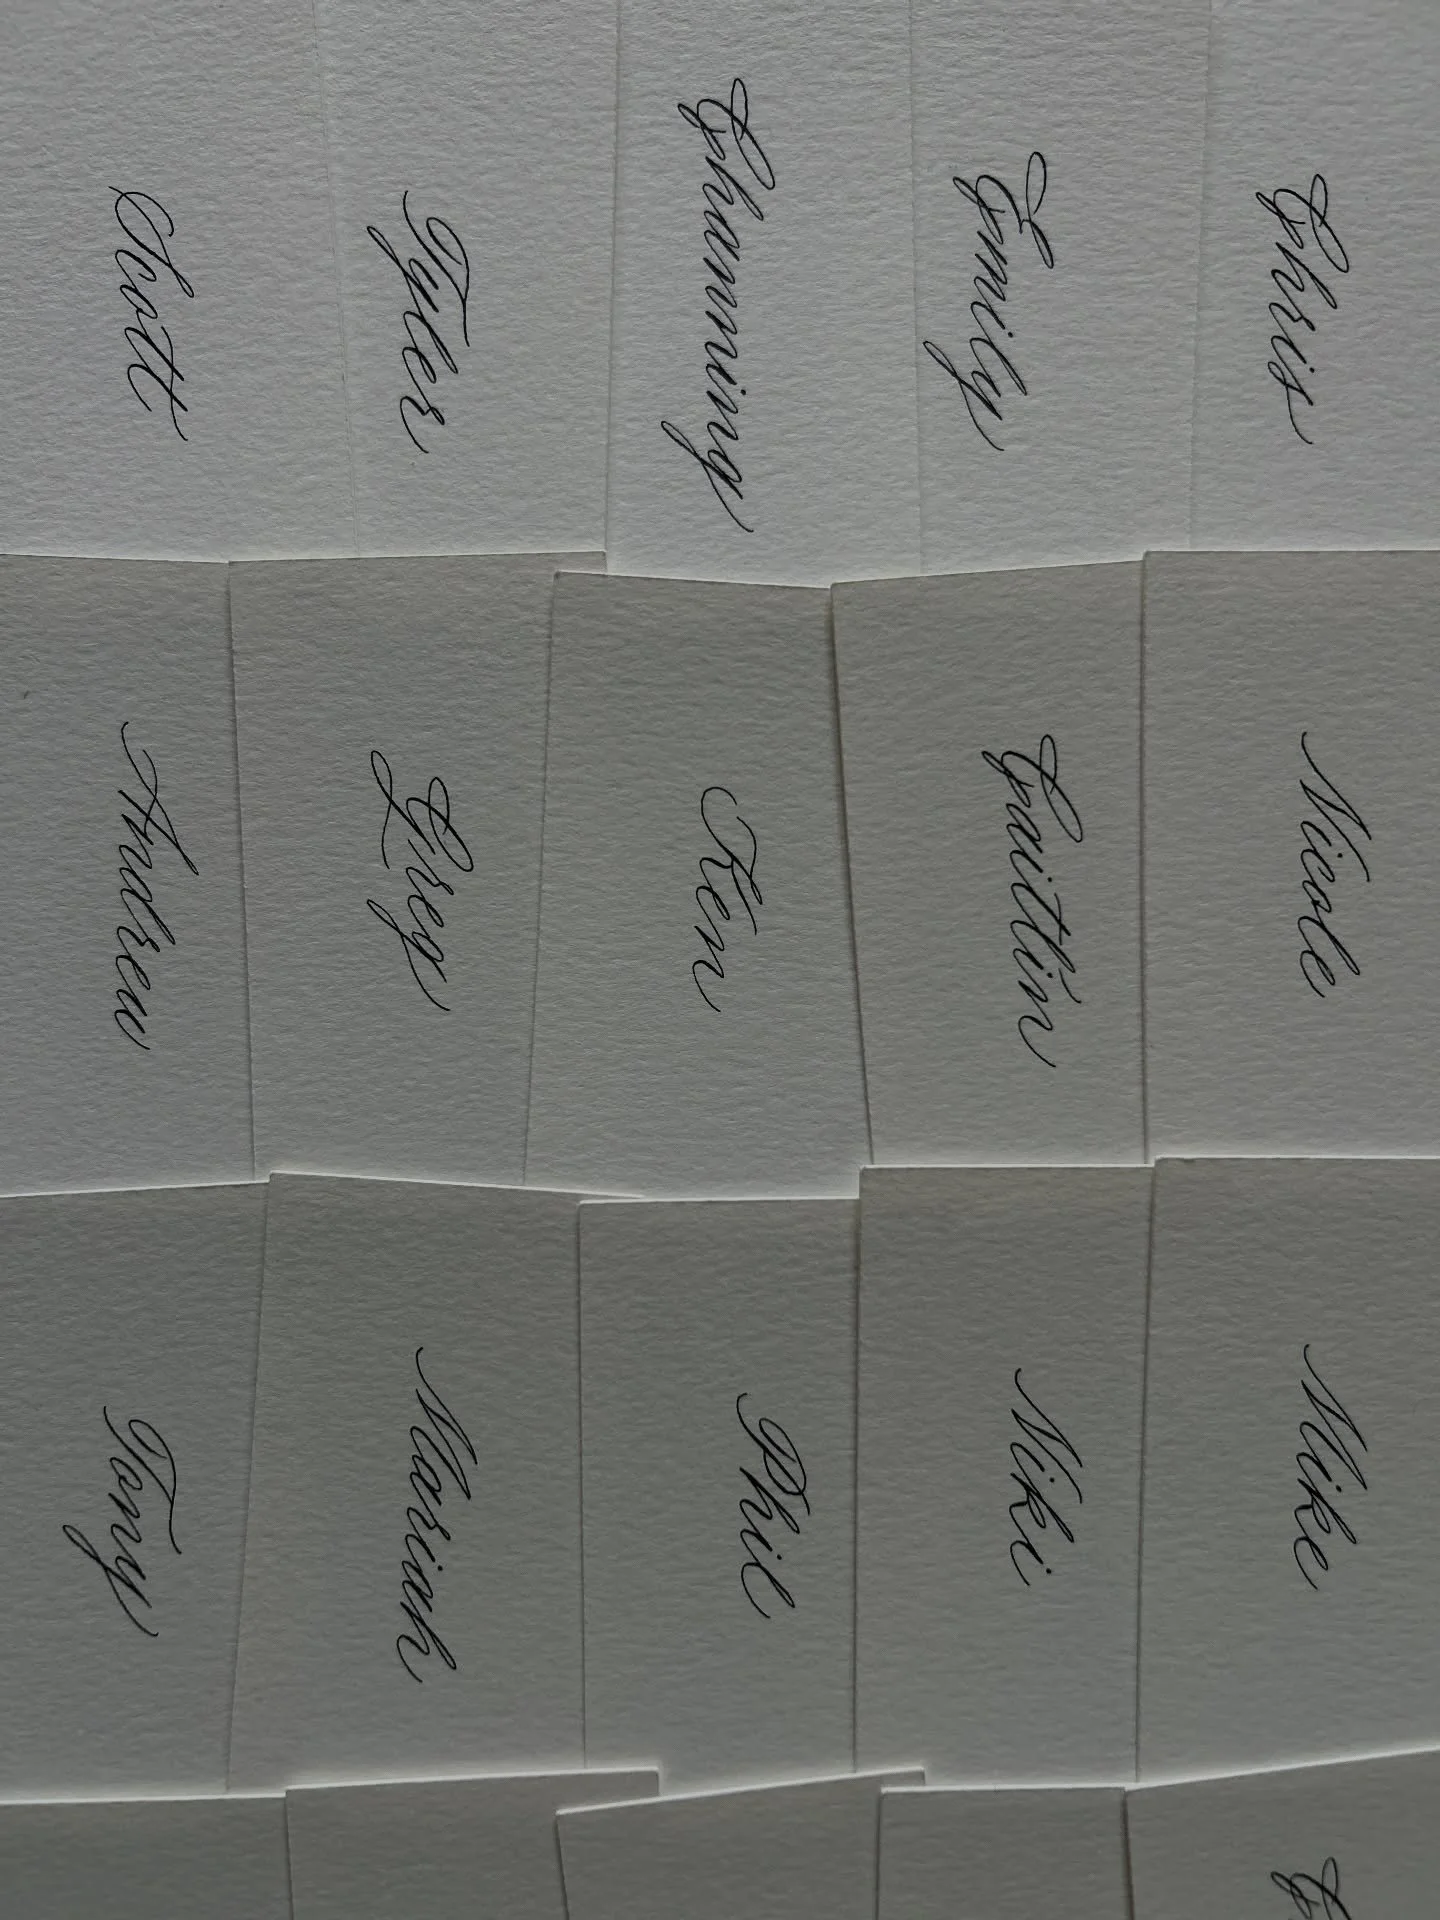 Chris Nicole Mike
Emily Caitlin Niki
Channing Ken Phil
Tyler Greg Mariah
Scott Andrew Tony